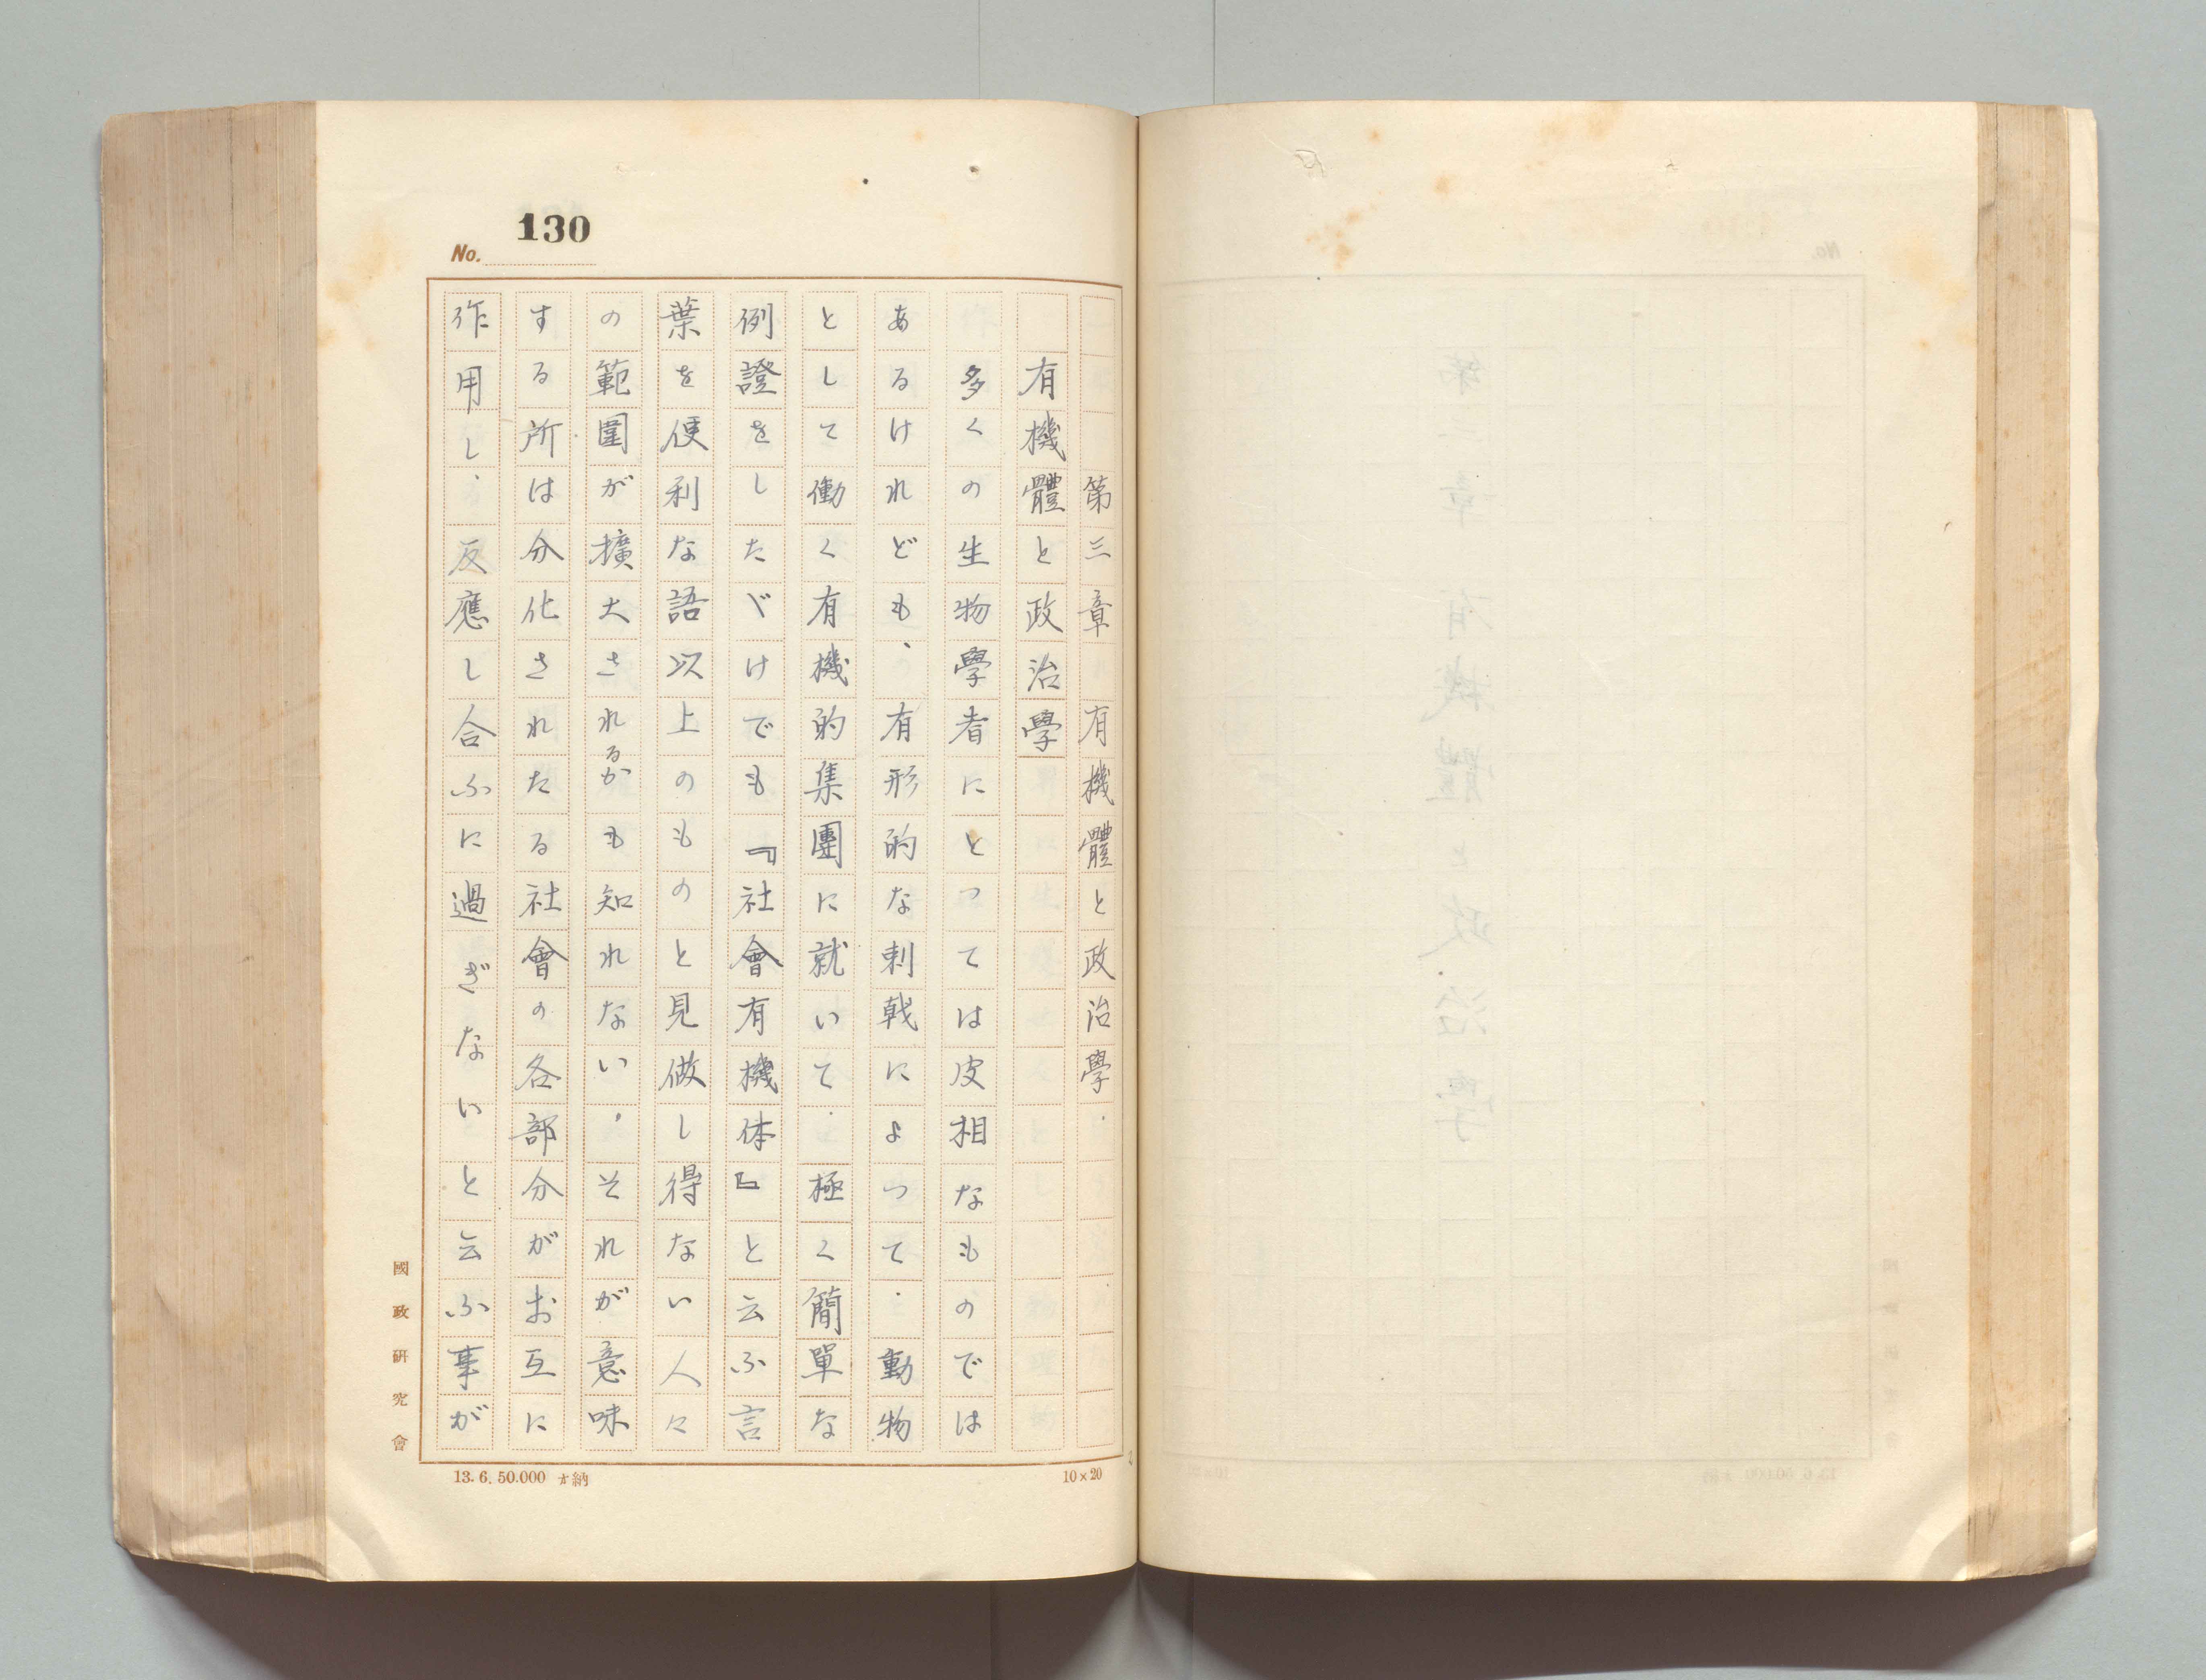 No. 130
第三章 有機體と政治學.
有機體と政治學
多くの生物學者にとつては皮相なものでは
あるけれども、有形的な刺戟によつて、動物
として働く有機的集團に就いて、極く簡單な
例證をしたゞけでも『社會有機体』と云ふ言
葉を便利な語以上のものと見做し得ない人々
の範圍が擴大されるかも知れない、それが意味
する所は分化されたる社會の各部分がお互に
作用し、反應し合ふに過ぎないと云ふ事が
國政研究會
13.6.50.000 納
10×20